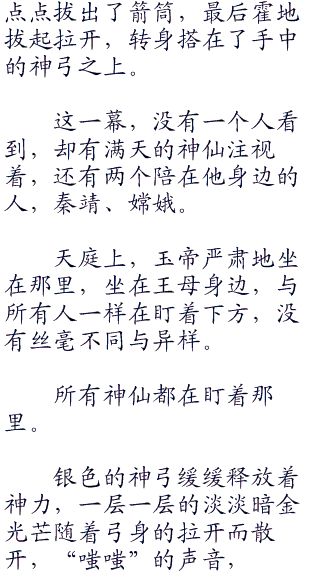 点点拔出了箭筒，最后霍地
拔起拉开，转身搭在了手中
的神弓之上。
这一幕，没有一个人看
到，却有满天的神仙注视
着，还有两个陪在他身边的
人，秦靖、嫦娥。
天庭上，玉帝严肃地坐
在那里，坐在王母身边，与
所有人一样在盯着下方，没
有丝毫不同与异样。
所有神仙都在盯着那
里。
银色的神弓缓缓释放着
神力，一层一层的淡淡暗金
光芒随着弓身的拉开而散
开，“嗤嗤”的声音，